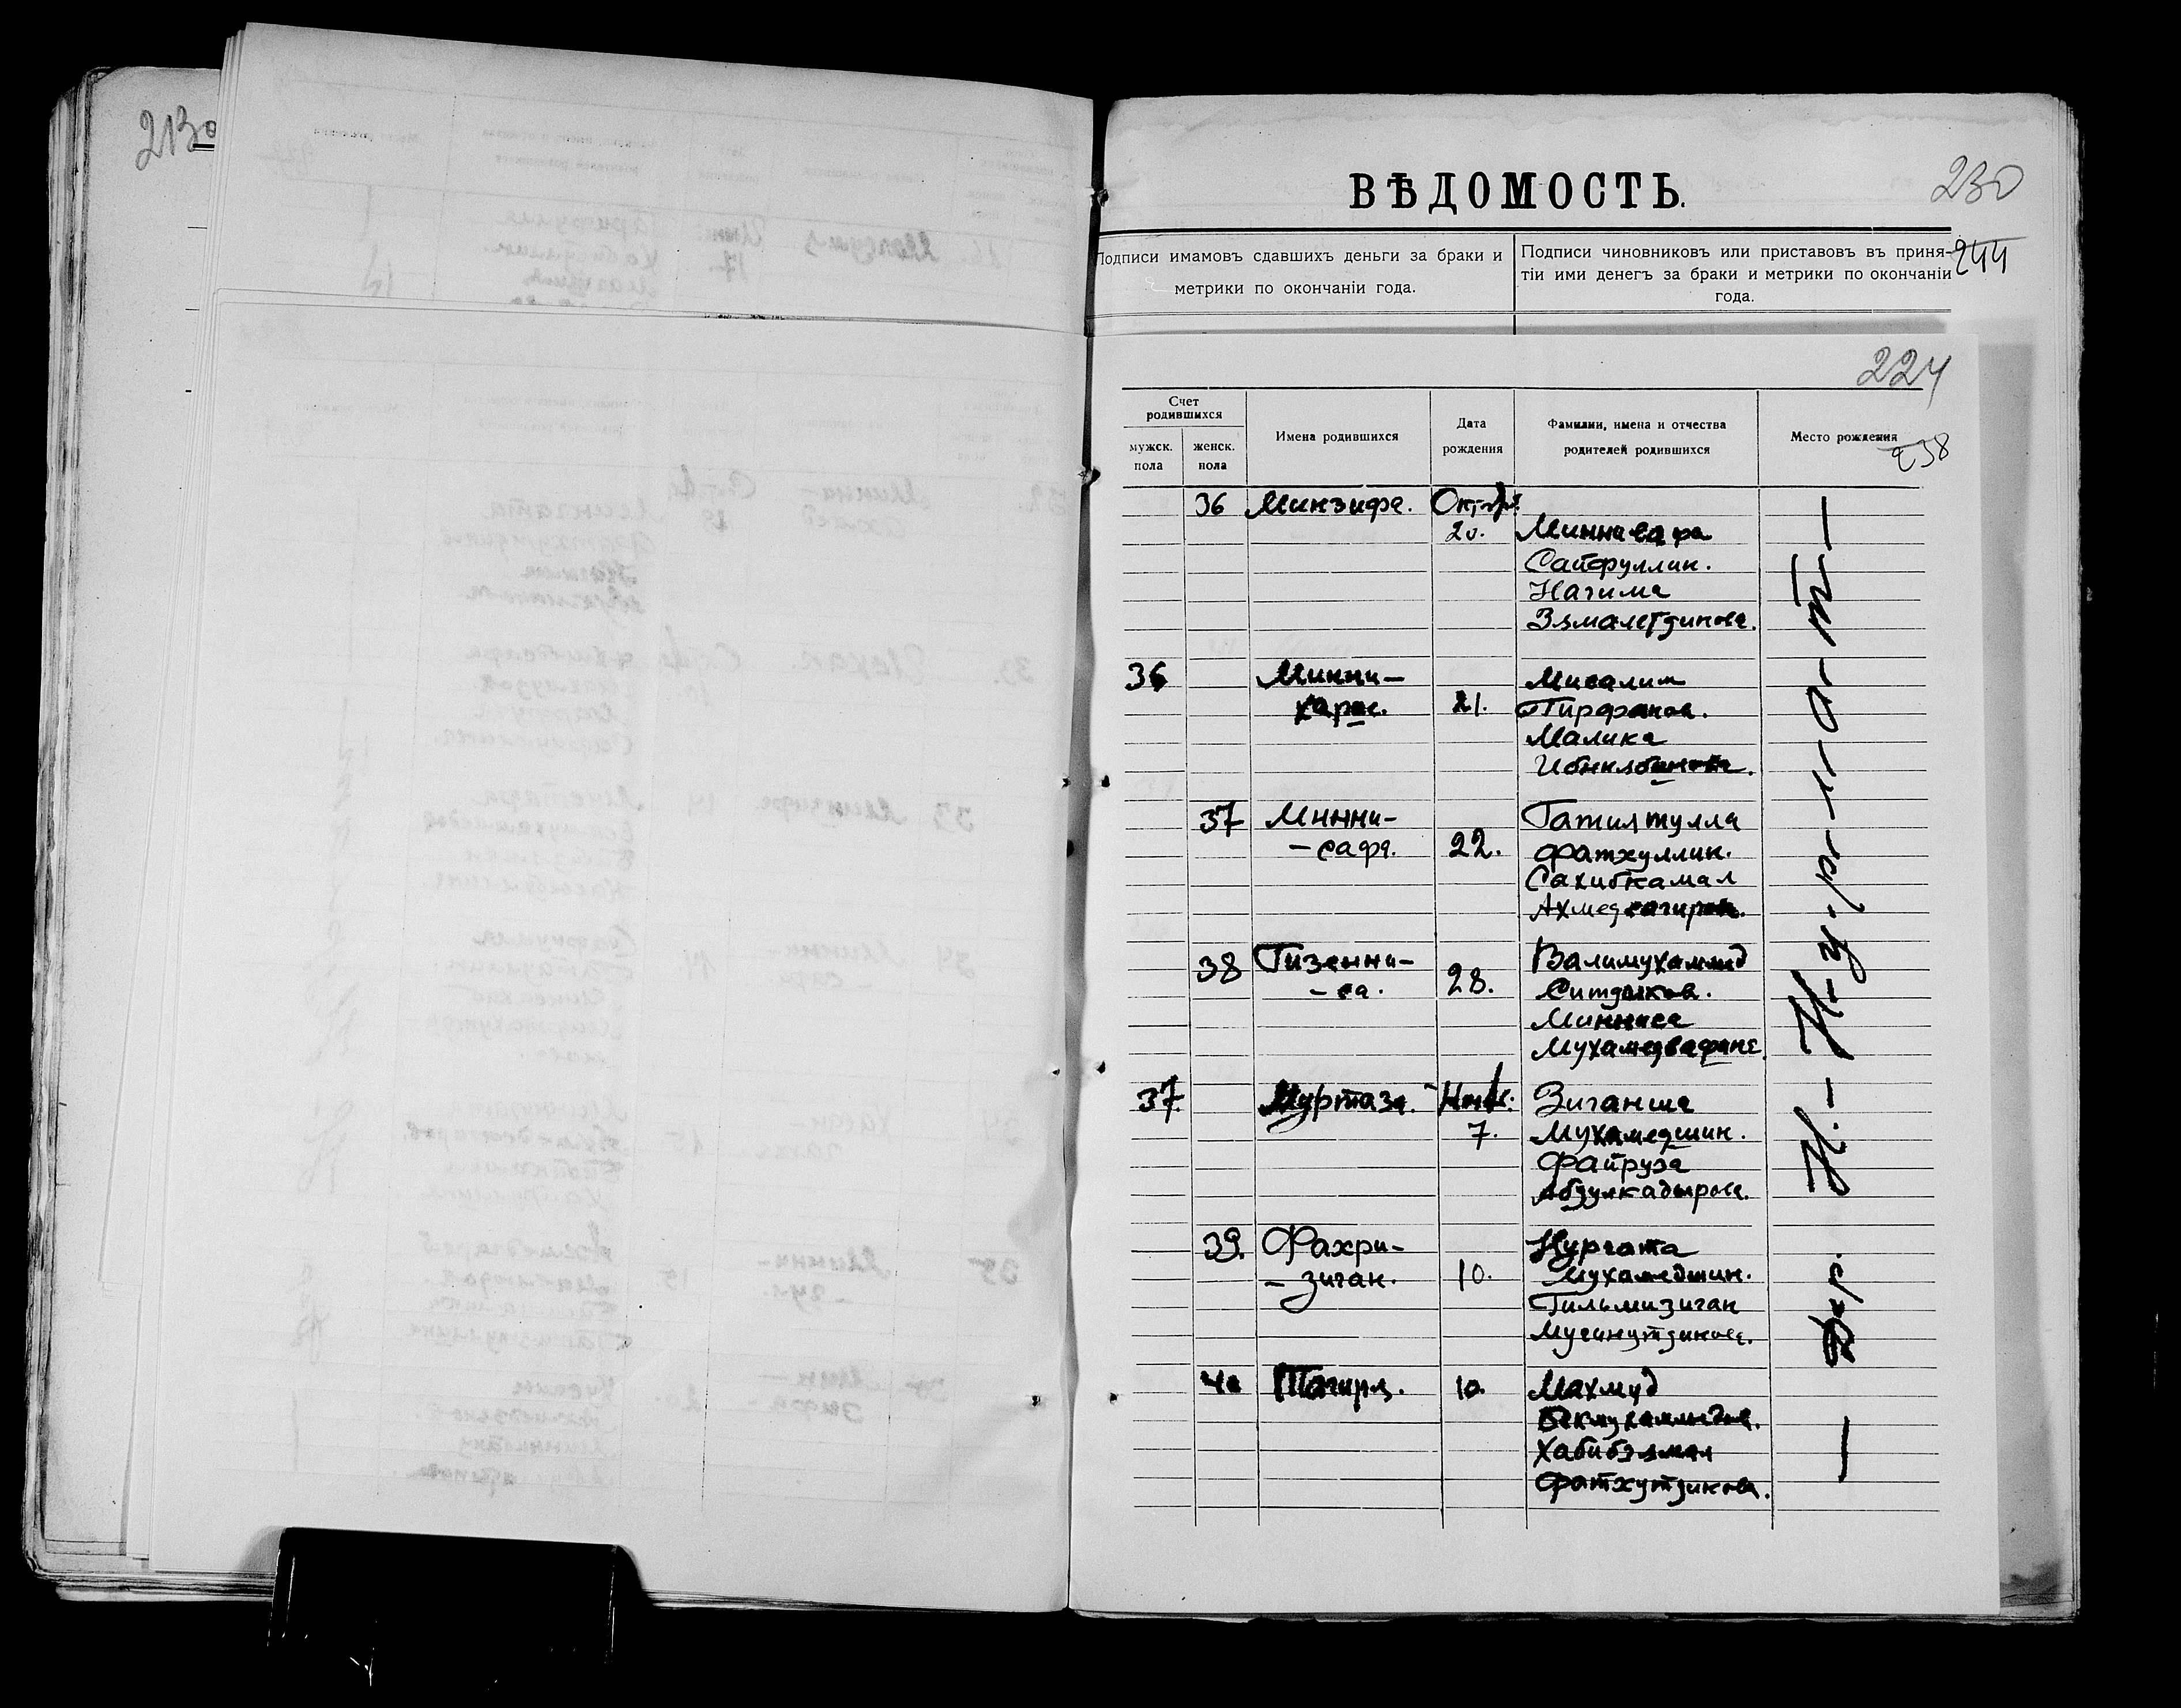 213
ВѢДОМОСТЬ.
230
Подписи имамовъ сдавшихъ деньги за браки и
метрики по окончанiи года.
Подписи чиновниковъ или приставовъ въ приня-
тiи ими денегъ за браки и метрики по окончанiи
года.
244
224
Счет
родившихся
мужск.
пола
женск.
пола
Имена родившихся
Дата
рождения
Фамилии, имена и отчества
родителей родившихся
Место рождения
238
36 Минзифа. Октябр.
20. Миннесафа
Сайфуллин.
Нагима
Зямалетдинова.
36 Минни- Мисалим
харис. 21. Гирфанов.
Малика
37 Минни- Гатиятулла
-сафа. 22. Фатхуллин.
Сахибкамал
Ахмедсагиров.
38 Гизенни- Валимухаммед
-са. 28. Ситдыков.
Минниса
Мухамедвафине
37. Муртаза. Нояб. Зиганша
7. Мухамедшин.
Файруза
Абдулкадырова.
39. Фахри- Нургата
-зиган. 10. Мухамедшин.
Гильмизиган
Мусинутдинова.
40 Тагира. 10. Махмуд
Бекмухаммедов.
Хабибзямал
Фатхутдинова.
Дер. Н.-Н-у-р-л-а-т